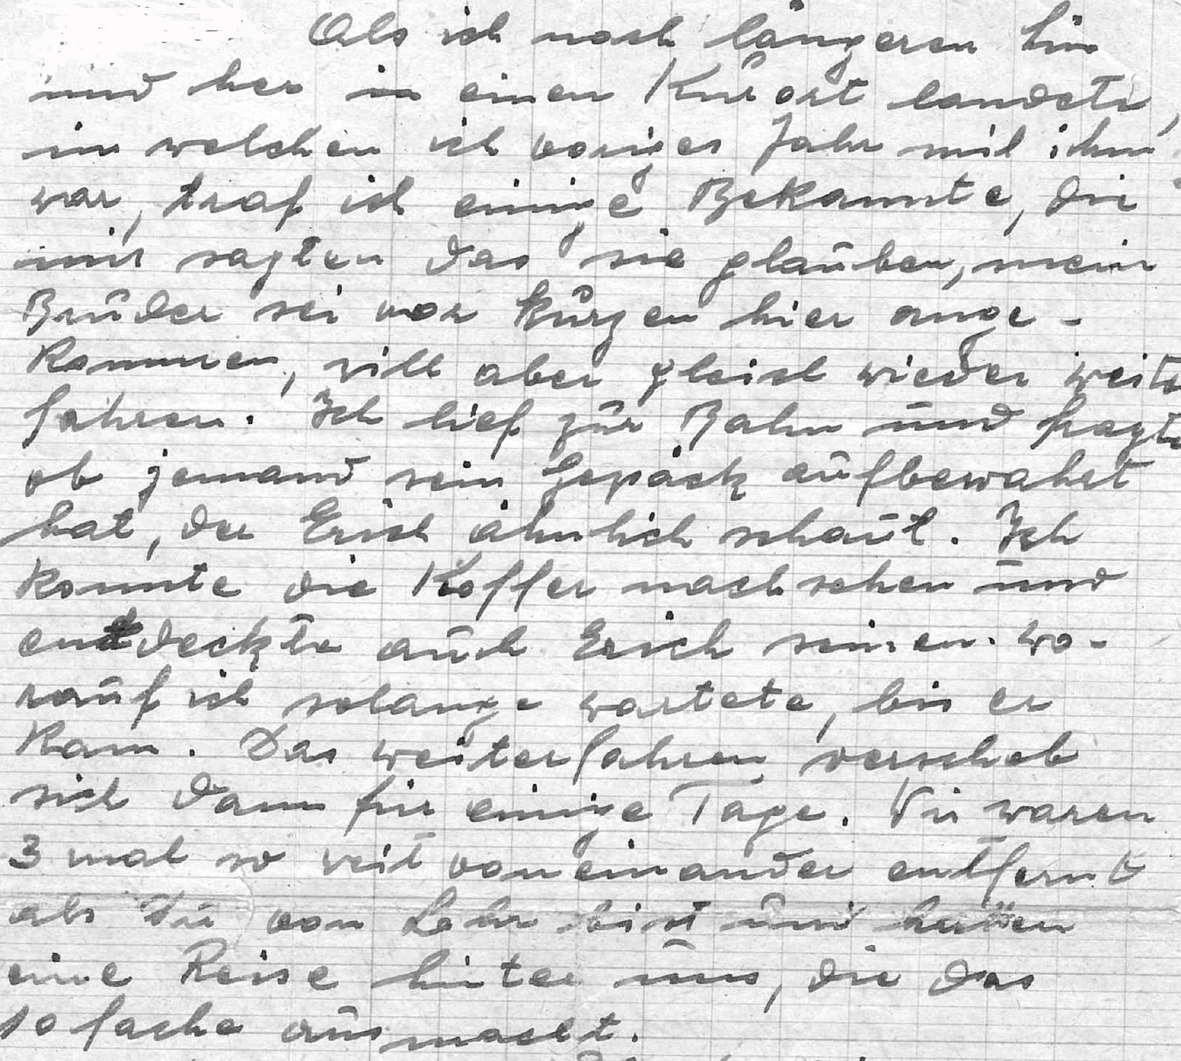 Als ich nach längeren hin
und her in einen Kurort landete,
in welchen ich voriges Jahr mit ihm
war, traf ich einige Bekannte, die
mir sagten das sie glauben, mein
Bruder sei vor kurzen hier ange-
kommen, will aber gleich wieder weiter
fahren. Ich lief zur Bahn und fragte
ob jemand sein Gepäck aufbewahrt
hat, der Erich ähnlich schaut. Ich
konnte die Koffer nachsehen und
entdeckte auch Erich seinen. Wo-
rauf ich solange wartete, bis er
kam. Das weiterfahren verschob
sich dann für einige Tage. Wir waren
3 mal so weit voneinander entfernt
als Du von Lohr bist und hatten
eine Reise hinter uns, die das
10 fache ausmacht.